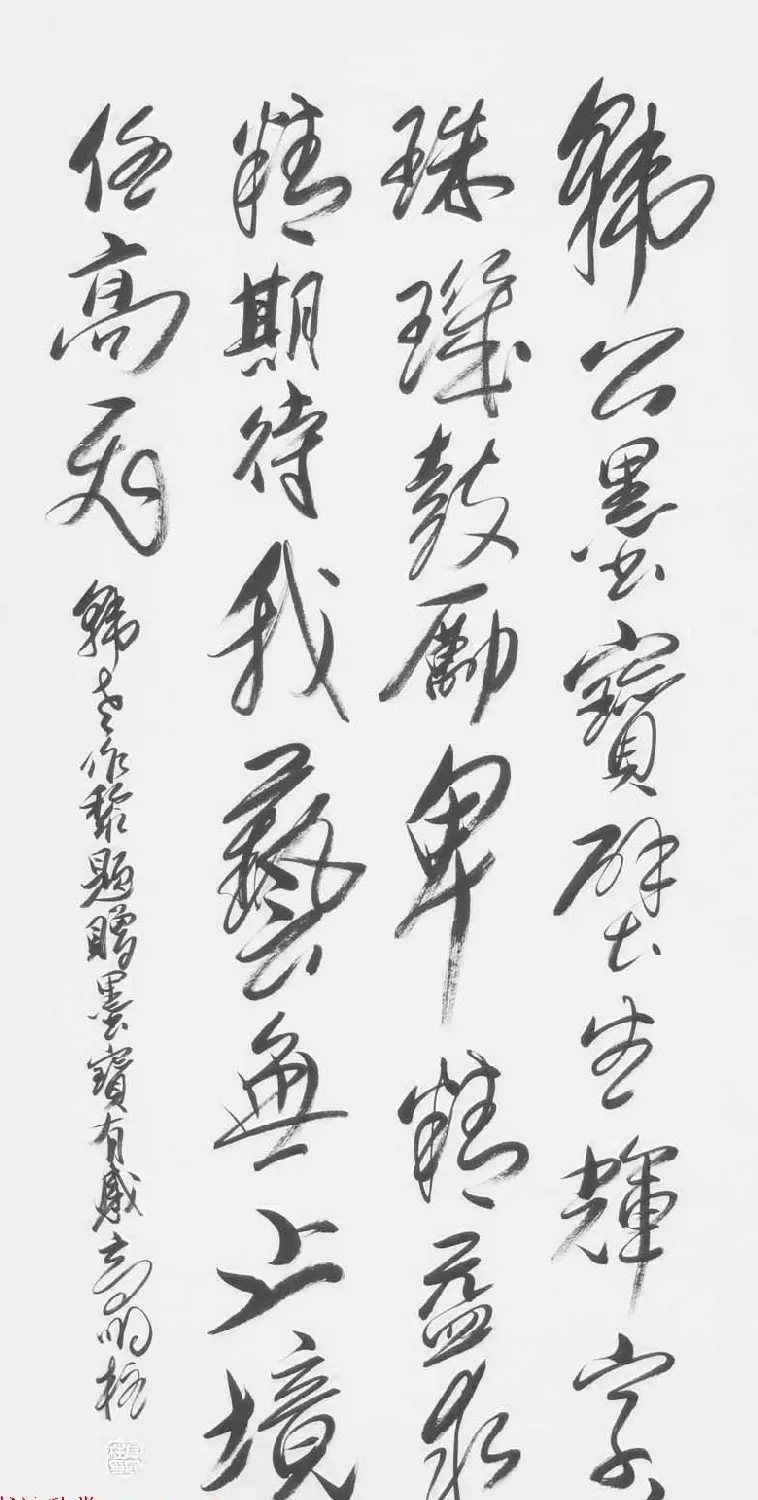 韓公墨寶壁生輝字
珠璣鼓勵卑精益求
精期待我藝無止境
任高飛
韓老作黎題贈墨寶有感高明柱